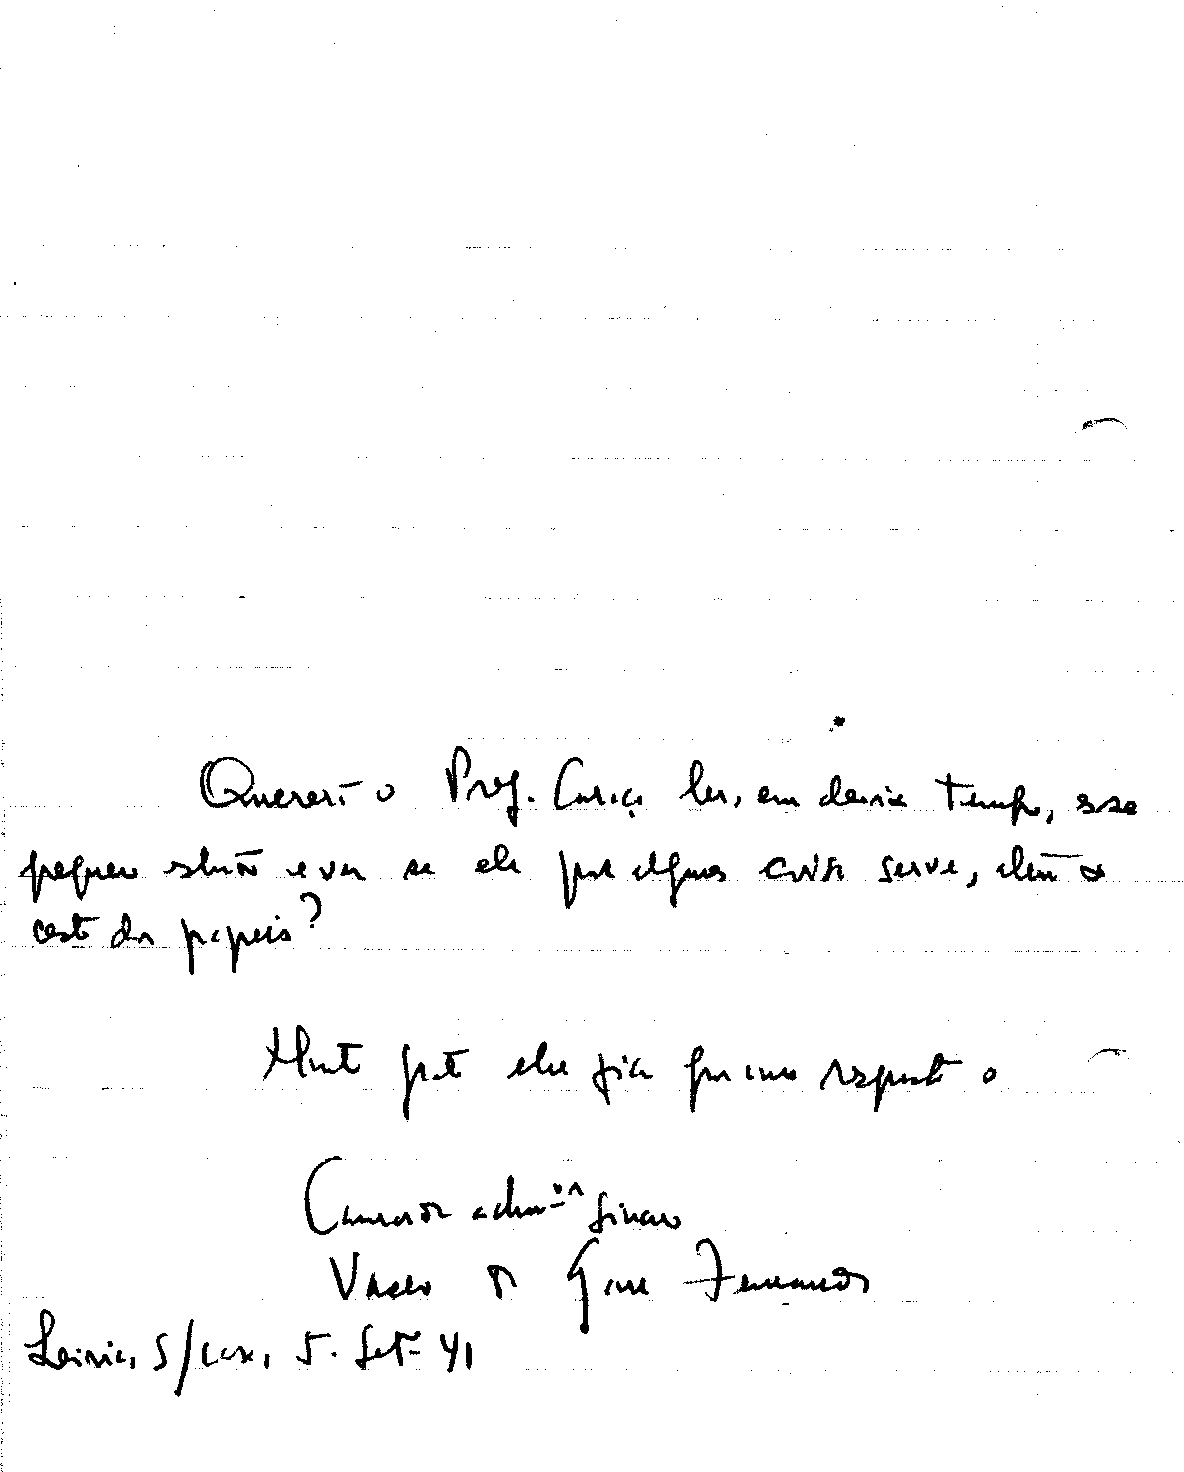 Quererá o Prof. Caraça ler, em devido tempo, esse
pequeno estudo e ver se ele para alguma coisa serve, além do
cesto dos papeis?
Muito grato lhe fica por uma resposta o
Camarada adm.ºʳ sincero
Vasco da Gama Fernandes
Leiria, S/casa, 5. Set. 41